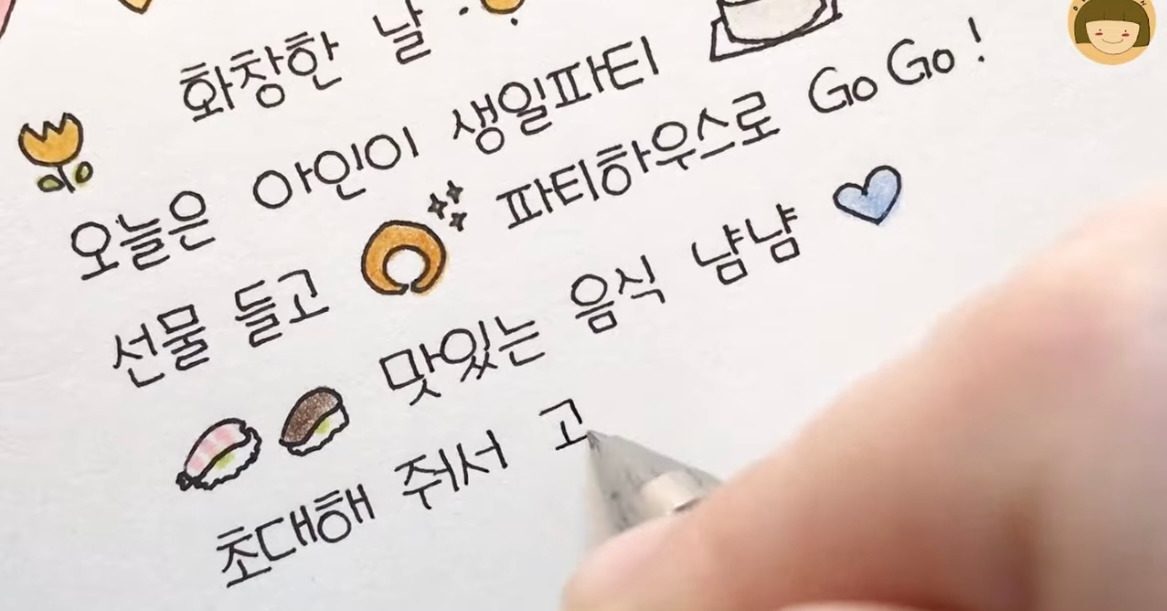 화창한 날
오늘은 아인이 생일파티
선물 들고 파티하우스로 Go Go!
맛있는 음식 냠냠
초대해 줘서 고